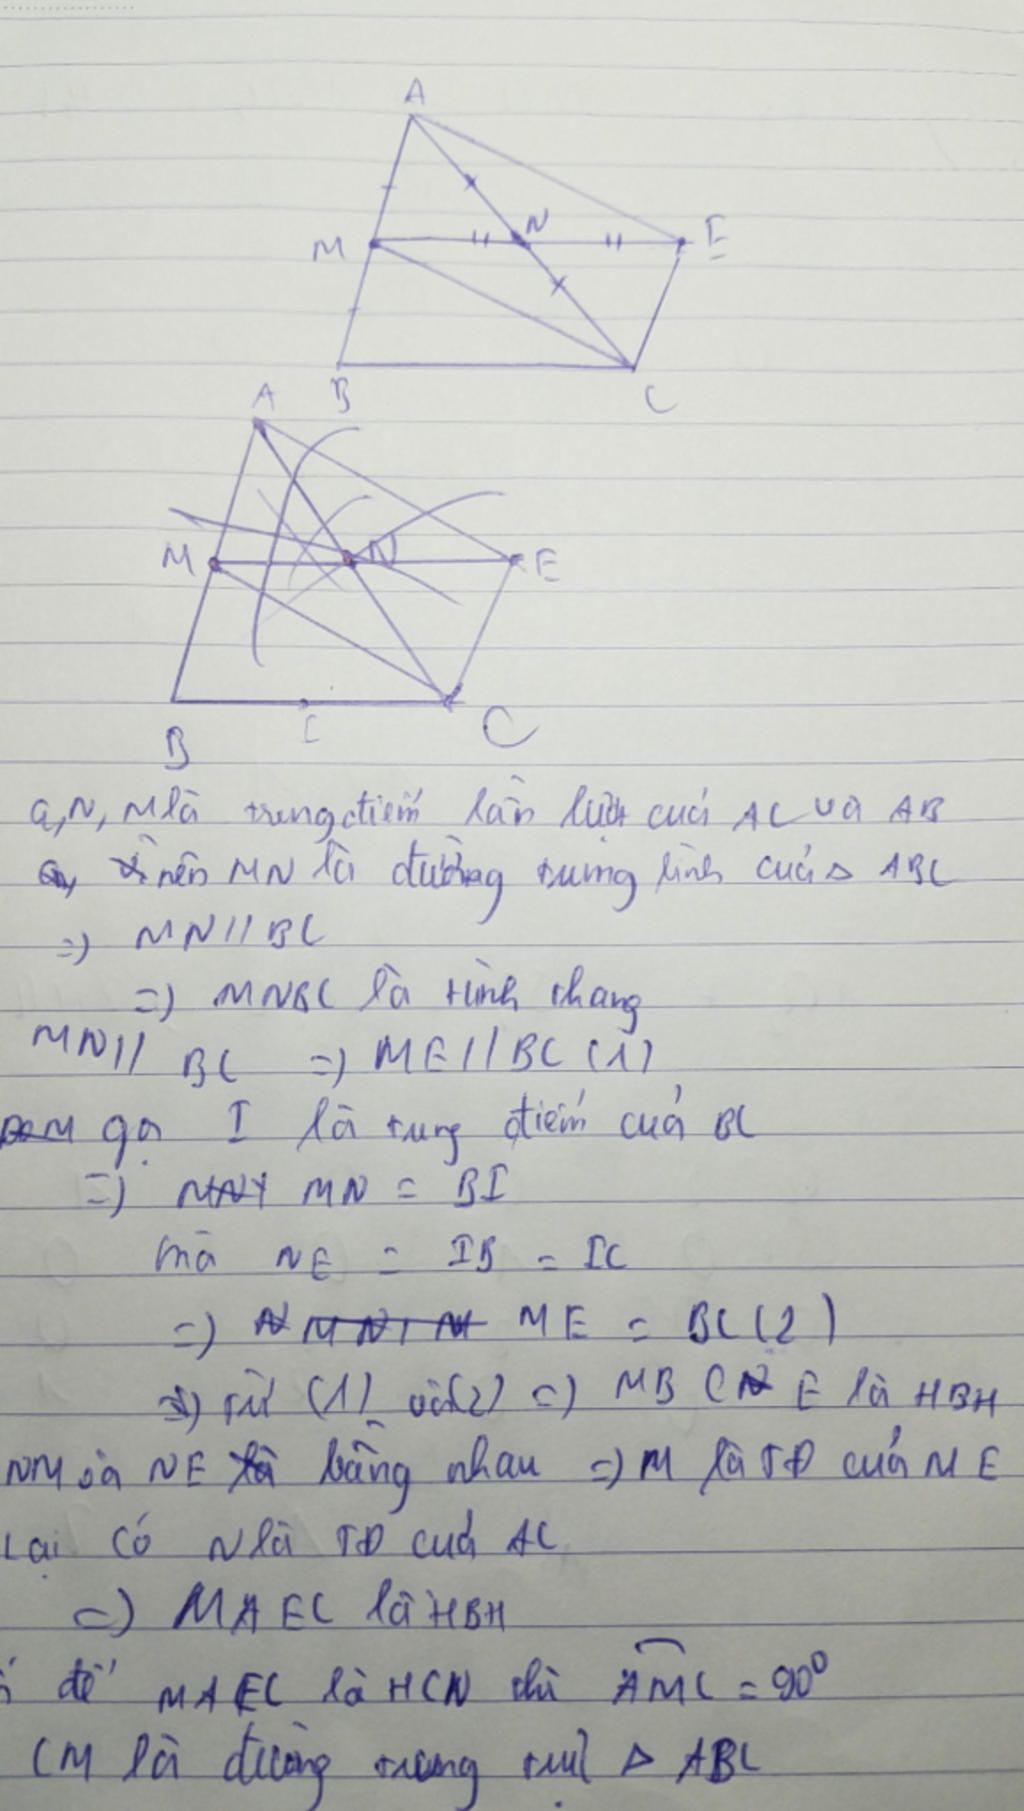 A
M
N
E
B
C
A
M
N
E
B
I
C
a, N, M là trung điểm lần lượt của AC và AB
nên MN là đường trung bình của Δ ABC
=> MN // BC
=> MNBC là hình thang
MN // BC => ME // BC (1)
gọi I là trung điểm của BC
=> MN = BI
mà NE = IB = IC
=> ME = BC (2)
=> từ (1) và (2) => MBCE là HBH
NM và NE là bằng nhau => M là TĐ của NE
Lại có N là TĐ của AC
=> MAEC là HBH
để MAEC là HCN thì AMC = 90°
CM là đường trung trực Δ ABC